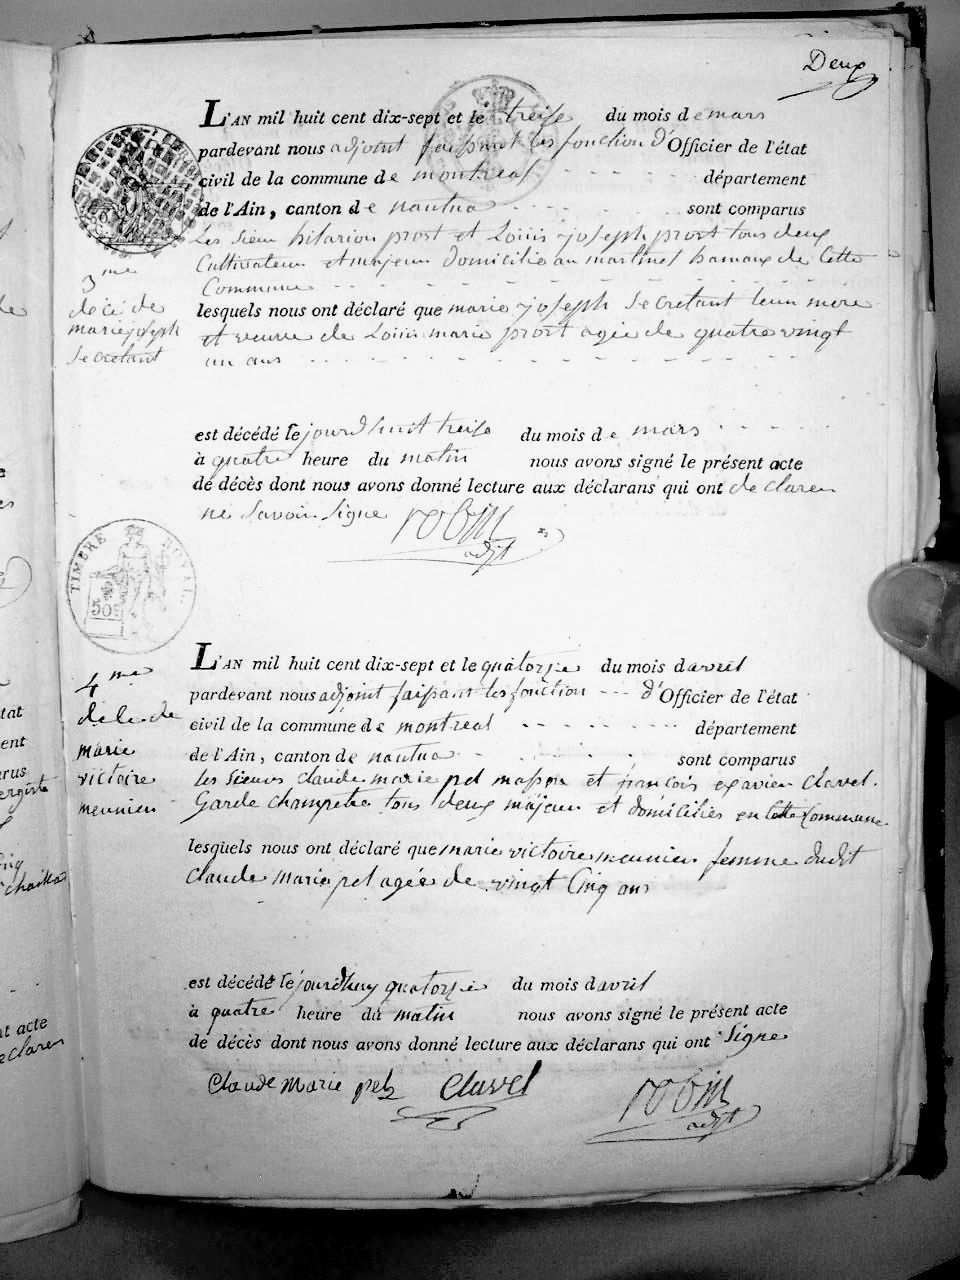 Deux
L'AN mil huit cent dix-sept et le treise du mois de mars
pardevant nous adjoint faissant les fonction d'Officier de l'état
civil de la commune de montreal département
de l'Ain, canton de nantua sont comparus
Les Sieur hilarion prost et Louis joseph prost tous deux
Cultivateur et majeur domicilié au martinet hamaux de Cette
Commune
3me
décè de
marie joseph
Secretant
lesquels nous ont déclaré que marie joseph Secretant leur mere
et veuve de Louis marie prost agée de quatre vingt
un ans
est décédé le jourd'huit treise du mois de mars
à quatre heure du matin nous avons signé le présent acte
de décès dont nous avons donné lecture aux déclarans qui ont declarer
ne Savoir Signe robin
adjt
TIMBRE ROYAL
50c
L'AN mil huit cent dix-sept et le quatorze du mois d'avril
pardevant nous adjoint faissant les fonction d'Officier de l'état
civil de la commune de montreal département
de l'Ain, canton de nantua sont comparus
4me
de
marie
victoire
meunier
les Sieurs Claude marie pel masson et françois exavier Clavel
Garde champetre tous deux majeur et domiciliés en Cette Commune
lesquels nous ont déclaré que marie victoire meunier femme dudit
Claude marie pel agée de vingt Cinq ans
est décédé le jourdhuy quatorze du mois d'avril
à quatre heure du matin nous avons signé le présent acte
de décès dont nous avons donné lecture aux déclarans qui ont Signe
Claude Marie pel Clavel robin
adjt